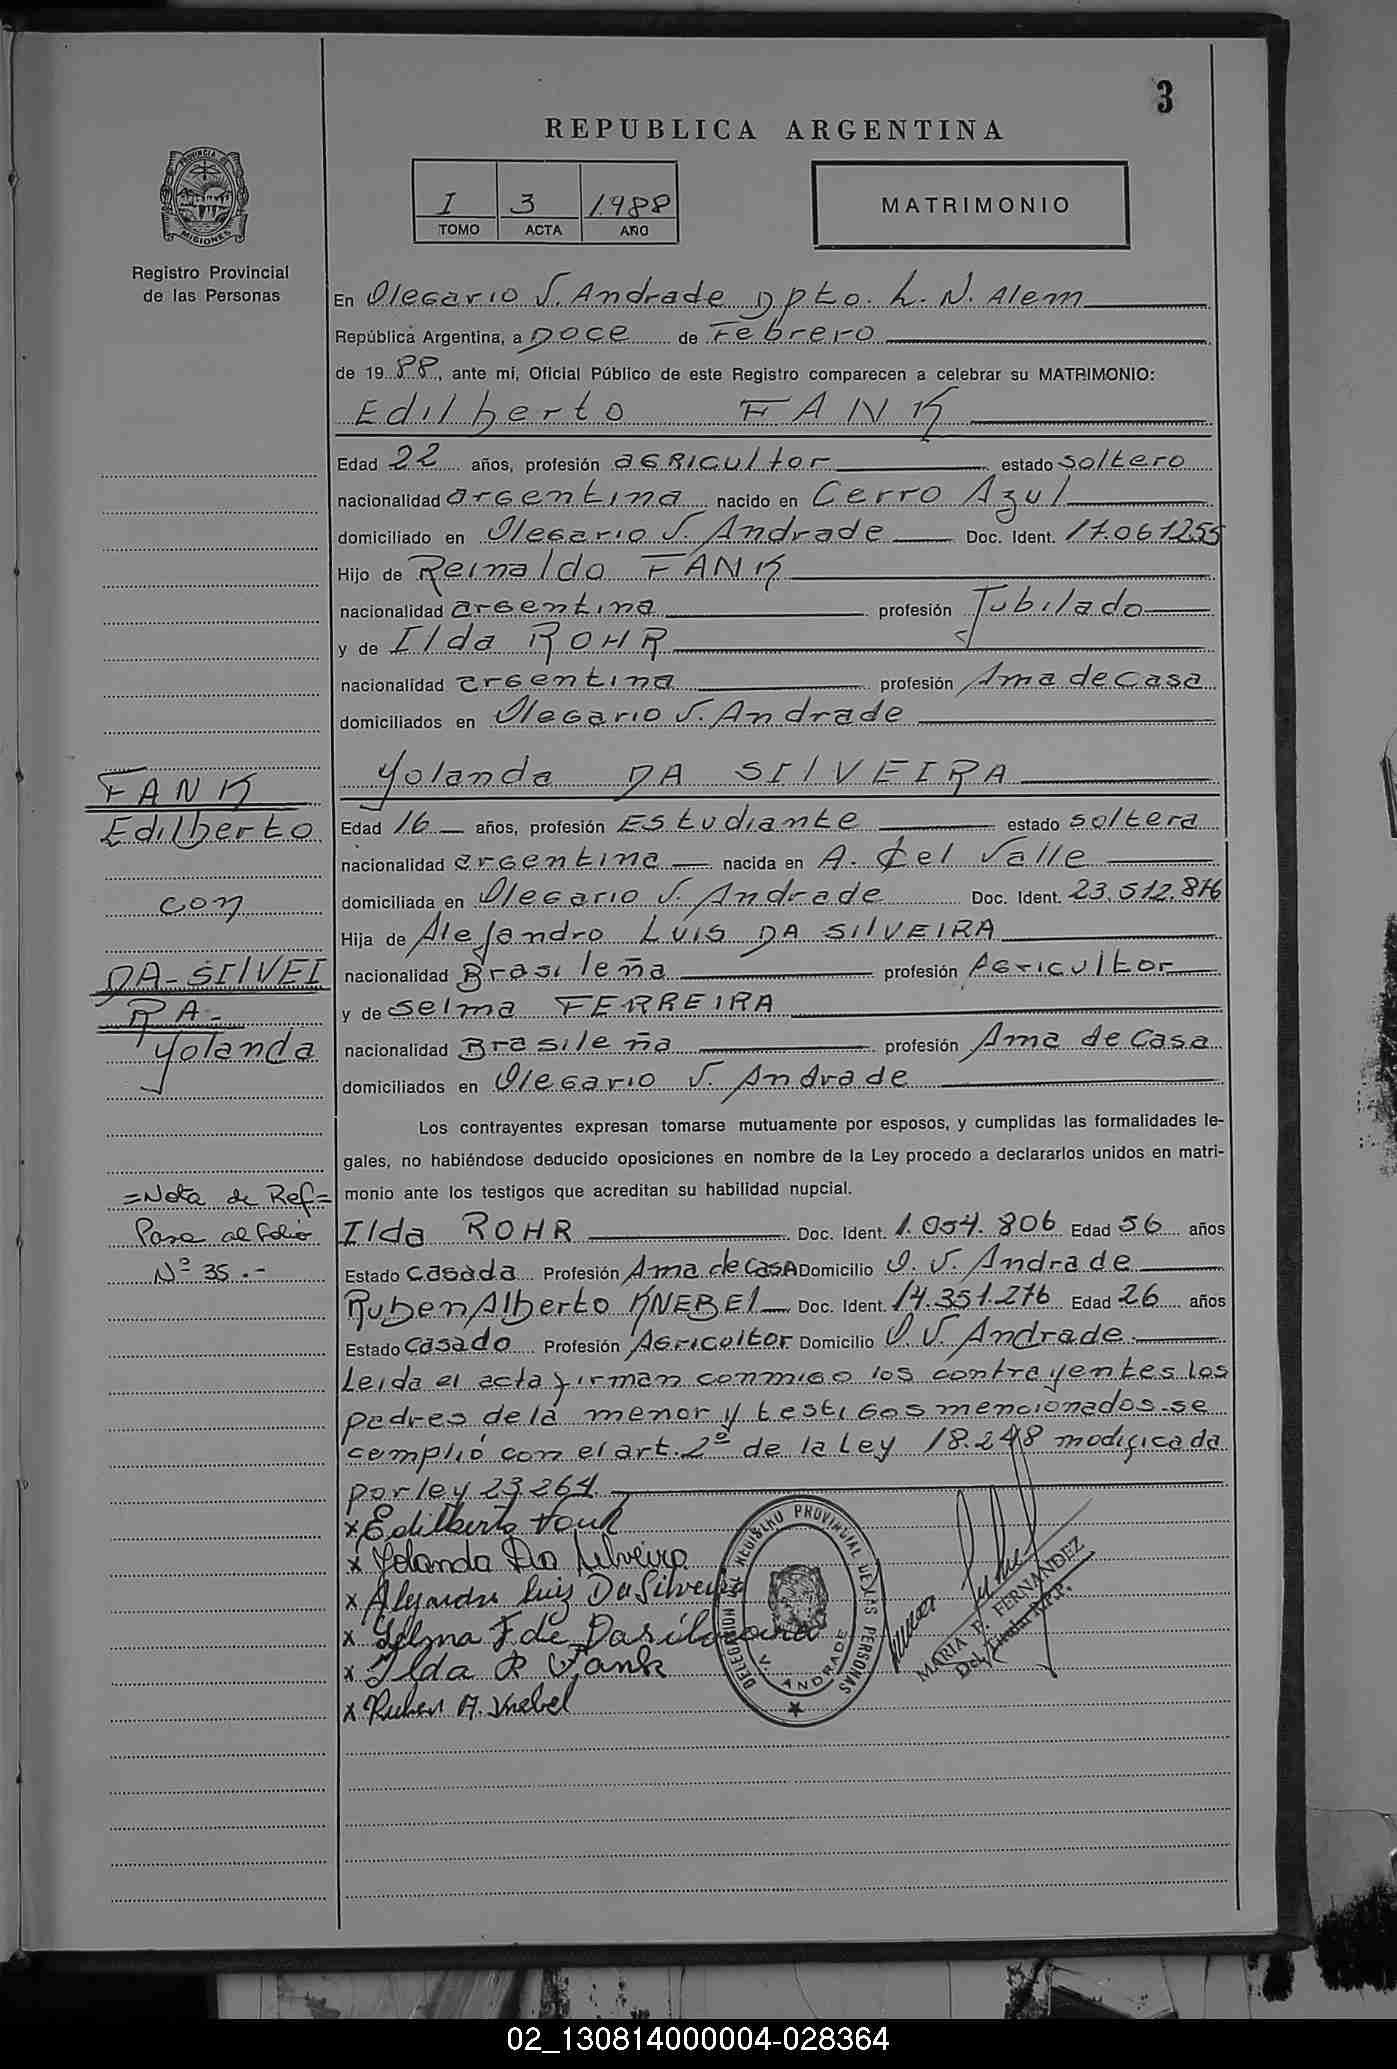 3
REPUBLICA ARGENTINA
PROVINCIA DE MISIONES
Registro Provincial
de las Personas
I 3 1.988
TOMO ACTA AÑO
MATRIMONIO
En Olegario V. Andrade Dpto. L. N. Alem
República Argentina, a Doce de Febrero
de 1988, ante mí, Oficial Público de este Registro comparecen a celebrar su MATRIMONIO:
Edilberto FANK
Edad 22 años, profesión agricultor estado soltero
nacionalidad argentina nacido en Cerro Azul
domiciliado en Olegario V. Andrade Doc. Ident. 17.061255
Hijo de Reinaldo FANK
nacionalidad argentina profesión Jubilado
y de Ilda ROHR
nacionalidad argentina profesión Ama de casa
domiciliados en Olegario V. Andrade
Yolanda DA SILVEIRA
Edad 16 años, profesión Estudiante estado soltera
nacionalidad argentina nacida en A. del Valle
domiciliada en Olegario V. Andrade Doc. Ident. 23.512.876
Hija de Alejandro LUIS DA SILVEIRA
nacionalidad Brasileña profesión Agricultor
y de Selma FERREIRA
nacionalidad Brasileña profesión Ama de Casa
domiciliados en Olegario V. Andrade
FANK
Edilberto
con
DA-SILVEI
RA-
Yolanda
=Nota de Ref=
Pase al folio
Nº 35.-
Los contrayentes expresan tomarse mutuamente por esposos, y cumplidas las formalidades le-
gales, no habiéndose deducido oposiciones en nombre de la Ley procedo a declararlos unidos en matri-
monio ante los testigos que acreditan su habilidad nupcial.
Ilda ROHR Doc. Ident. 1.054.806 Edad 56 años
Estado Casada Profesión Ama de CasA Domicilio O. V. Andrade
Ruben Alberto KNEBEl Doc. Ident. 14.351.276 Edad 26 años
Estado Casado Profesión Agricultor Domicilio O. V. Andrade
Leida el acta firman conmigo los contrayentes los
padres de la menor y testigos mencionados. se
cumplió con el art. 2º de la Ley 18.248 modificada
por ley 23.264.
x Edilberto Fank
x Yolanda Da Silveira
x Alejandro Luiz Da Silveira
x Selma F. de Dasilveira
x Ilda R Fank
x Ruben A. Knebel
DELEGACION DEL REGISTRO PROVINCIAL DE LAS PERSONAS
V. ANDRADE
MARIA F. FERNANDEZ
Del. Titular R.P.P.
02_130814000004-028364